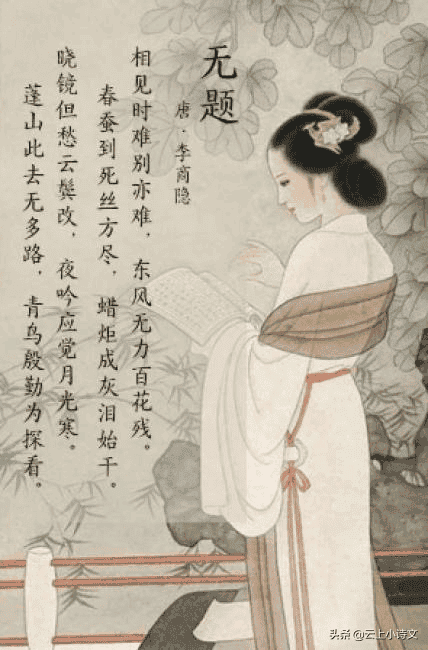 无题
唐·李商隐
相见时难别亦难，东风无力百花残。
春蚕到死丝方尽，蜡炬成灰泪始干。
晓镜但愁云鬓改，夜吟应觉月光寒。
蓬山此去无多路，青鸟殷勤为探看。
头条 @云上小诗文